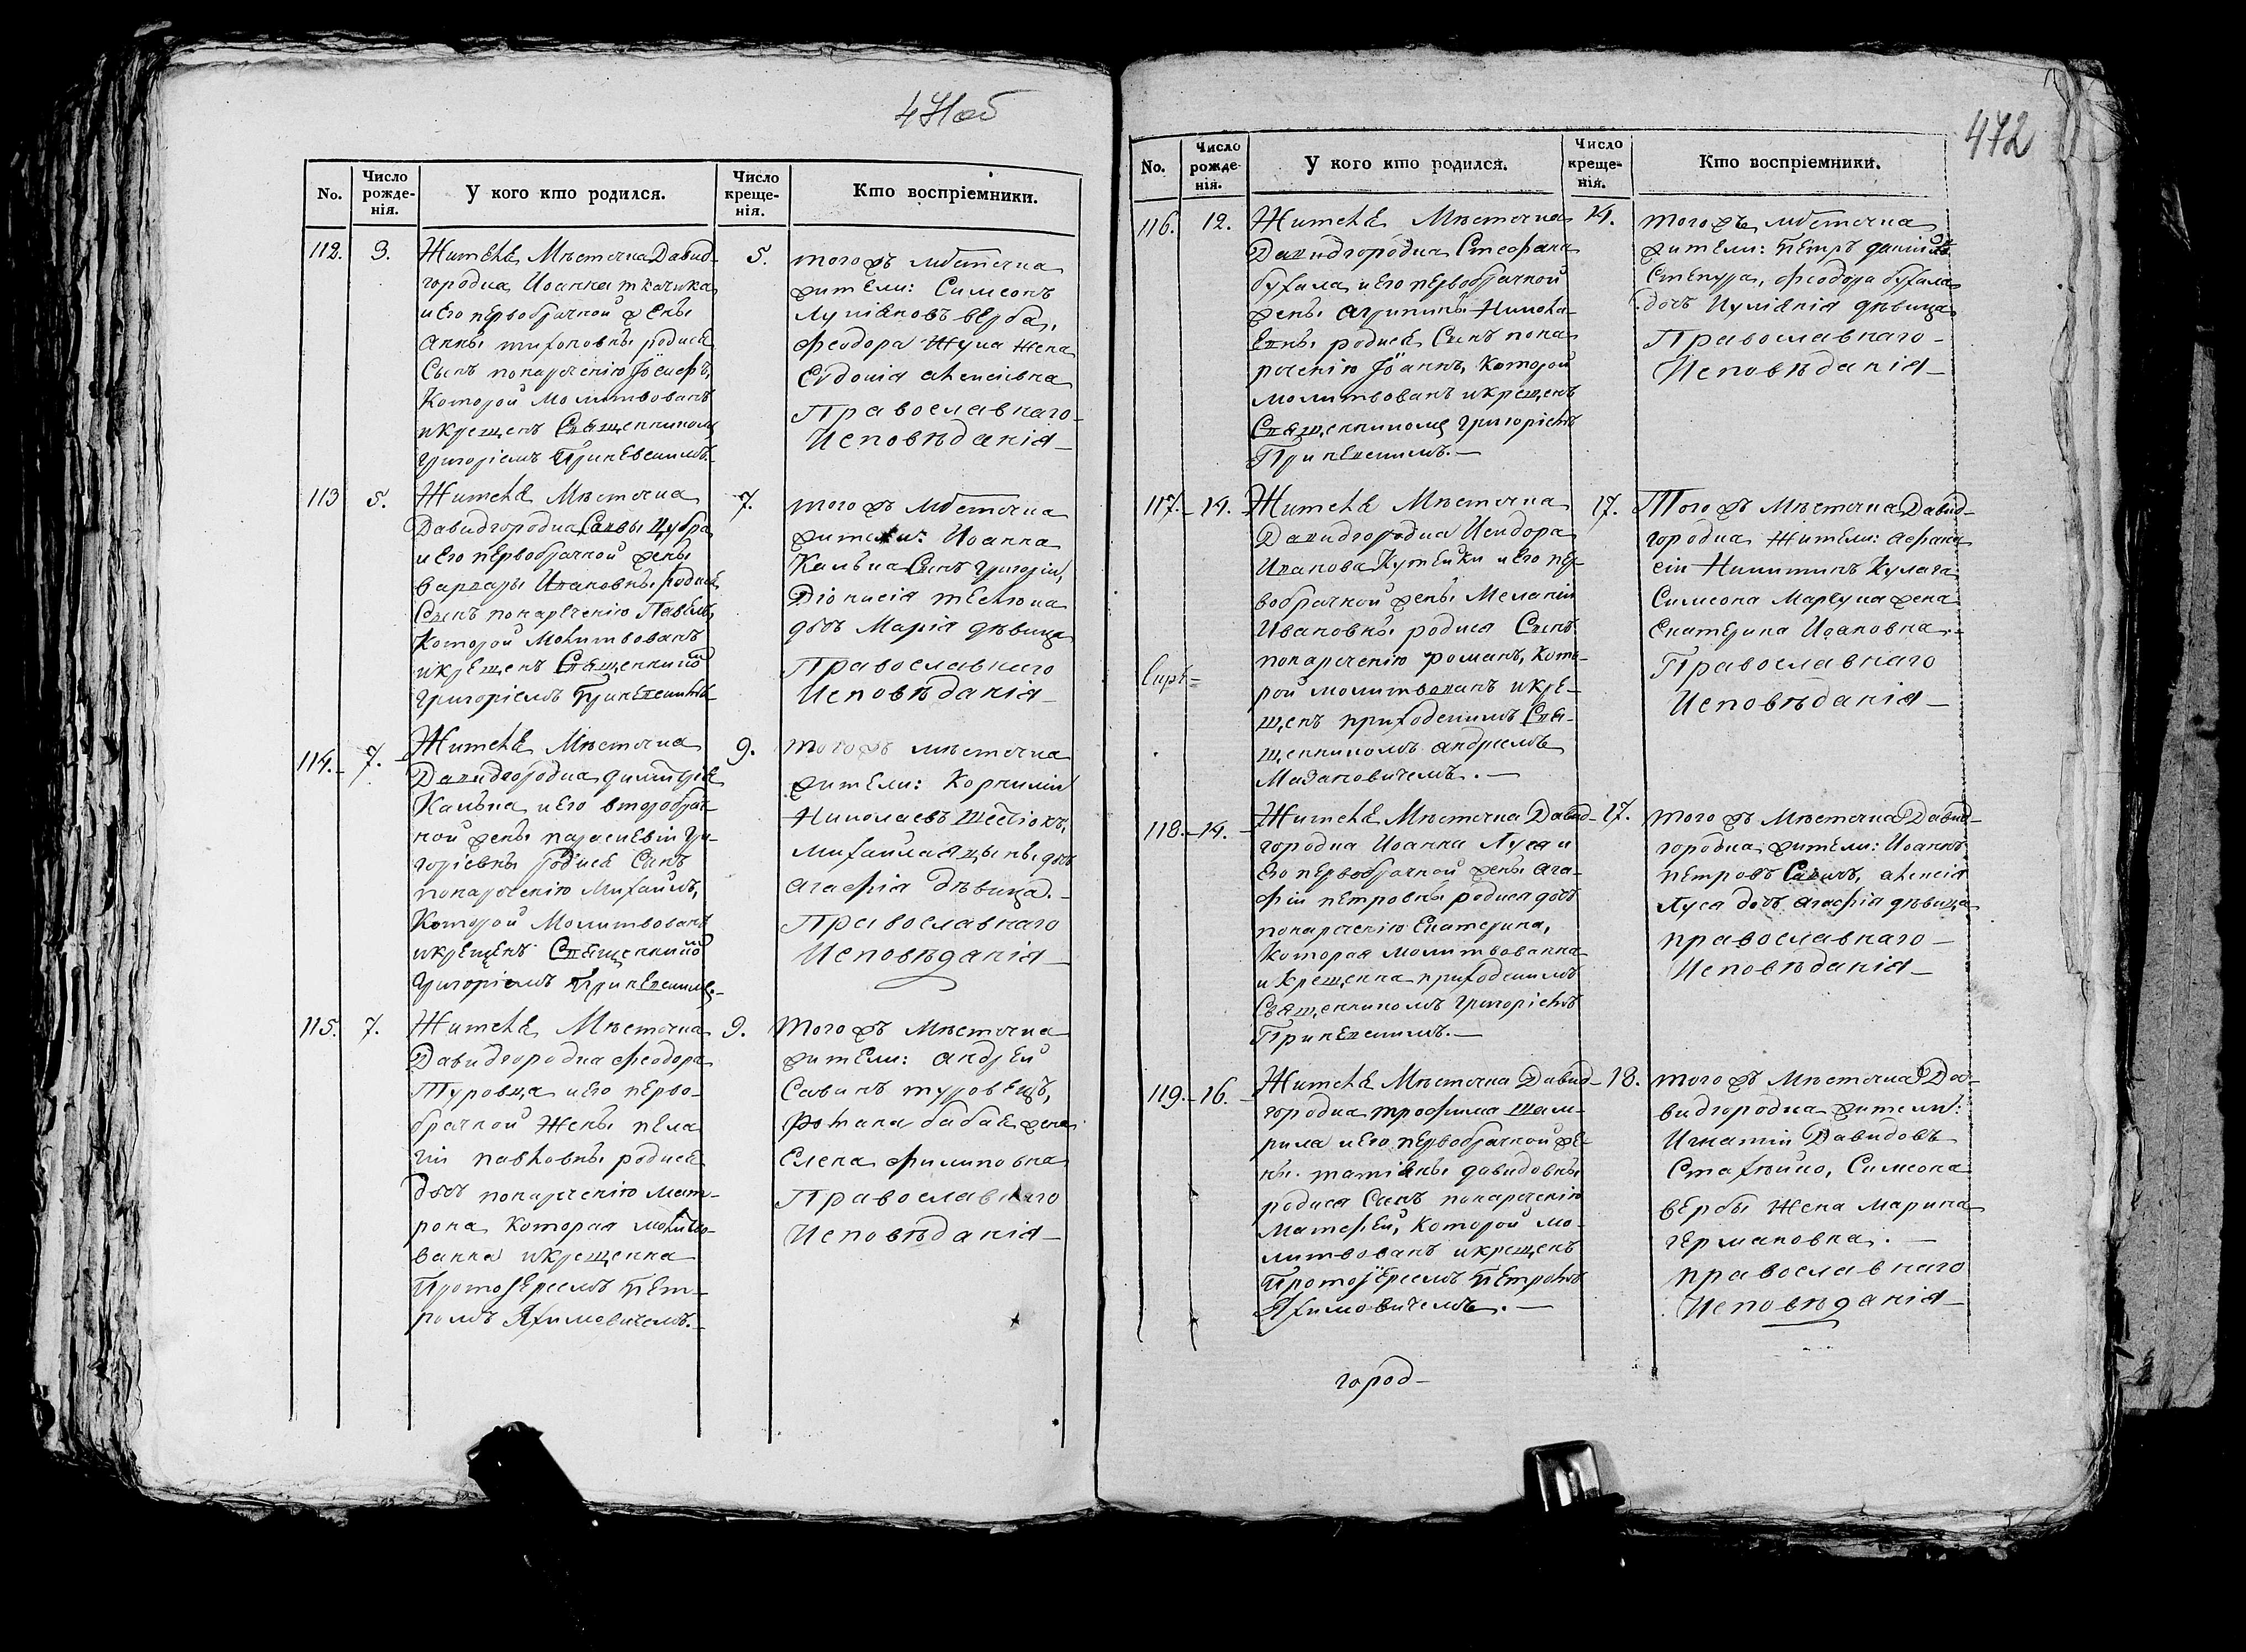 471об
No.
Число рожде- нія.
У кого кто родился.
Число креще- нія.
Кто воспріемники.
112. 3.
Жителя Мѣстечка Давид-
городка Иоанна ткачика
и Его первобрачной жены
Анны тихоновны родися
Сынъ понаречению Іосифъ,
Которой Молитвованъ
икрещенъ Священникомъ
григоріемъ Трипевскимъ.
5.
тогожъ мѣстечка
жители: Симеонъ
Лукіяновъ верба,
феодора Жука жена
Евдокія алексіевна
Православнаго-
Исповѣданія-
113 5.
Жителя Мѣстечка
Давидгородка Саввы Цубра
и Его первобрачной жены
варвары Ивановны родися
Сынъ понаречению Павелъ,
Которой Молитвованъ
икрещенъ Священником
григоріемъ
7.
тогожъ мѣстечка
жители: Иоанна
Калька Сынъ григорій,
Діонисія
дочъ Марія дѣвица
Православнаго
Исповѣданія-
114. 7.
Жителя Мѣстечка
Давидгородка димитрія
Калька и Его второбрач-
ной жены параскевіи гри-
горіевны родися Сынъ
понаречению Михаилъ,
Которой Молитвованъ
икрещенъ Священником
григоріемъ
9.
тогожъ мѣстечка
жители: Корнилій
Николаевъ
Михаила дочъ
агафія дѣвица.-
Православнаго
Исповѣданія-
115. 7.
Жителя Мѣстечка
Давидгородка феодора
Туровца и Его перво-
брачной Жены пела
гіи павловны родися
дочъ понаречению мат-
рона которая молитво-
ванна икрещенна
Протоіереемъ Пет-
ромъ Яхимовичемъ.-
9.
тогожъ Мѣстечка
жители: андрей
Савинъ туровецъ,
романа бабая жена
Елена филиповна
Православнаго
Исповѣданія-
472
No.
Число рожде- нія.
У кого кто родился.
Число креще- нія.
Кто воспріемники.
116. 12.
Жителя Мѣстечка
Давидгородка Стефана
бухала и Его первобрачной
жены агрипины Никола-
Евны родися Сынъ пона
речению Іоаннъ, Которой
молитвованъ икрещенъ
Священникомъ григоріемъ
14.
тогожъ мѣстечка
жители: Петръ
феодора бухала
дочъ Иуліянія дѣвица
Православнаго-
Исповѣданія-
117.- 14.-
Жителя Мѣстечка
Давидгородка Исидора
Иванова Кутейки и Его пер-
вобрачной жены Меланіи
Ивановны родися Сынъ
понаречению романъ, кото-
рой молитвованъ икре-
щенъ приходскимъ Свя-
щенникомъ андреемъ
Мазановичемъ.-
17.
Тогожъ Мѣстечка Давид-
городка жители: Афана
сій Никитинъ Кулага
Симеона Марзука жена
Екатерина Иоановна.-
Православнаго
Исповѣданія-
118.-14.-
Жителя Мѣстечка Давид-
городка Иоанна Луся и
Его первобрачной жены ага-
фіи петровны родися дочъ
понаречению Екатерина,
Которая молитвованна
и Крещенна приходскимъ
Священникомъ григоріемъ
17.
тогожъ Мѣстечка Давид-
городка жители: Иоаннъ
петровъ Савичъ, алексія
Луся дочъ агафія дѣвица
православнаго-
Исповѣданія-
119.-16.-
Жителя Мѣстечка Давид-
городка трофима Шам-
рила и Его первобрачной же-
ны татіяны давидовны
родися Сынъ понаречению
Матфей, Которой мо-
литвованъ икрещенъ
Протоіереемъ Петромъ
Яхимовичемъ.-
18.
тогожъ Мѣстечка Да-
видгородка жители:
Игнатій Давидовъ
Стахѣйко, Симеона
вербы Жена марина
германовна.-
православнаго
Исповѣданія-
город-